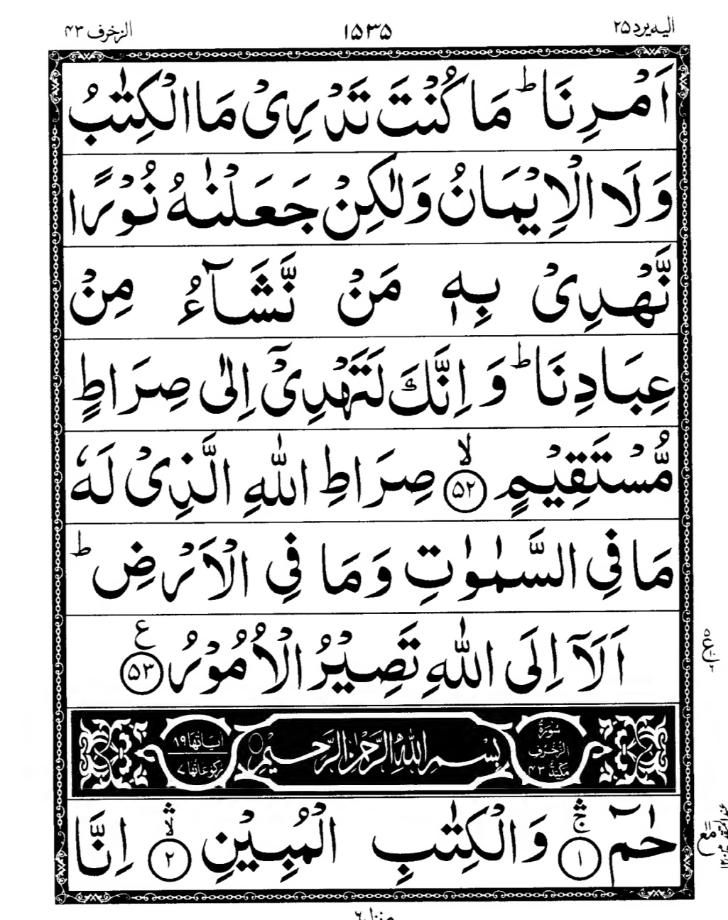 الیه یرد ۲۵
۱۵۳۵
الزخرف ۴۳
اَمْرِنَا ؕ مَا كُنْتَ تَدْرِیْ مَا الْكِتٰبُ
وَلَا الْاِیْمَانُ وَلٰكِنْ جَعَلْنٰهُ نُوْرًا
نَّهْدِیْ بِهٖ مَنْ نَّشَآءُ مِنْ
عِبَادِنَا ؕ وَ اِنَّكَ لَتَهْدِیْۤ اِلٰی صِرَاطٍ
مُّسْتَقِیْمٍ ۙ﴿۵۲﴾ صِرَاطِ اللّٰهِ الَّذِیْ لَهٗ
مَا فِی السَّمٰوٰتِ وَمَا فِی الْاَرْضِ ؕ
اَلَاۤ اِلَی اللّٰهِ تَصِیْرُ الْاُمُوْرُ ﴿۵۳﴾ ع
سُوْرَةُ الزُّخْرُفِ مَكِّیَّةٌ ۴۳
بِسْمِ اللّٰهِ الرَّحْمٰنِ الرَّحِیْمِ
اٰیَاتُهَا ۱۹
رُكُوْعَاتُهَا ۷
حٰمٓ ۚۛ﴿۱﴾ وَالْكِتٰبِ الْمُبِیْنِ ۙۛ﴿۲﴾ اِنَّا
منزل ۶